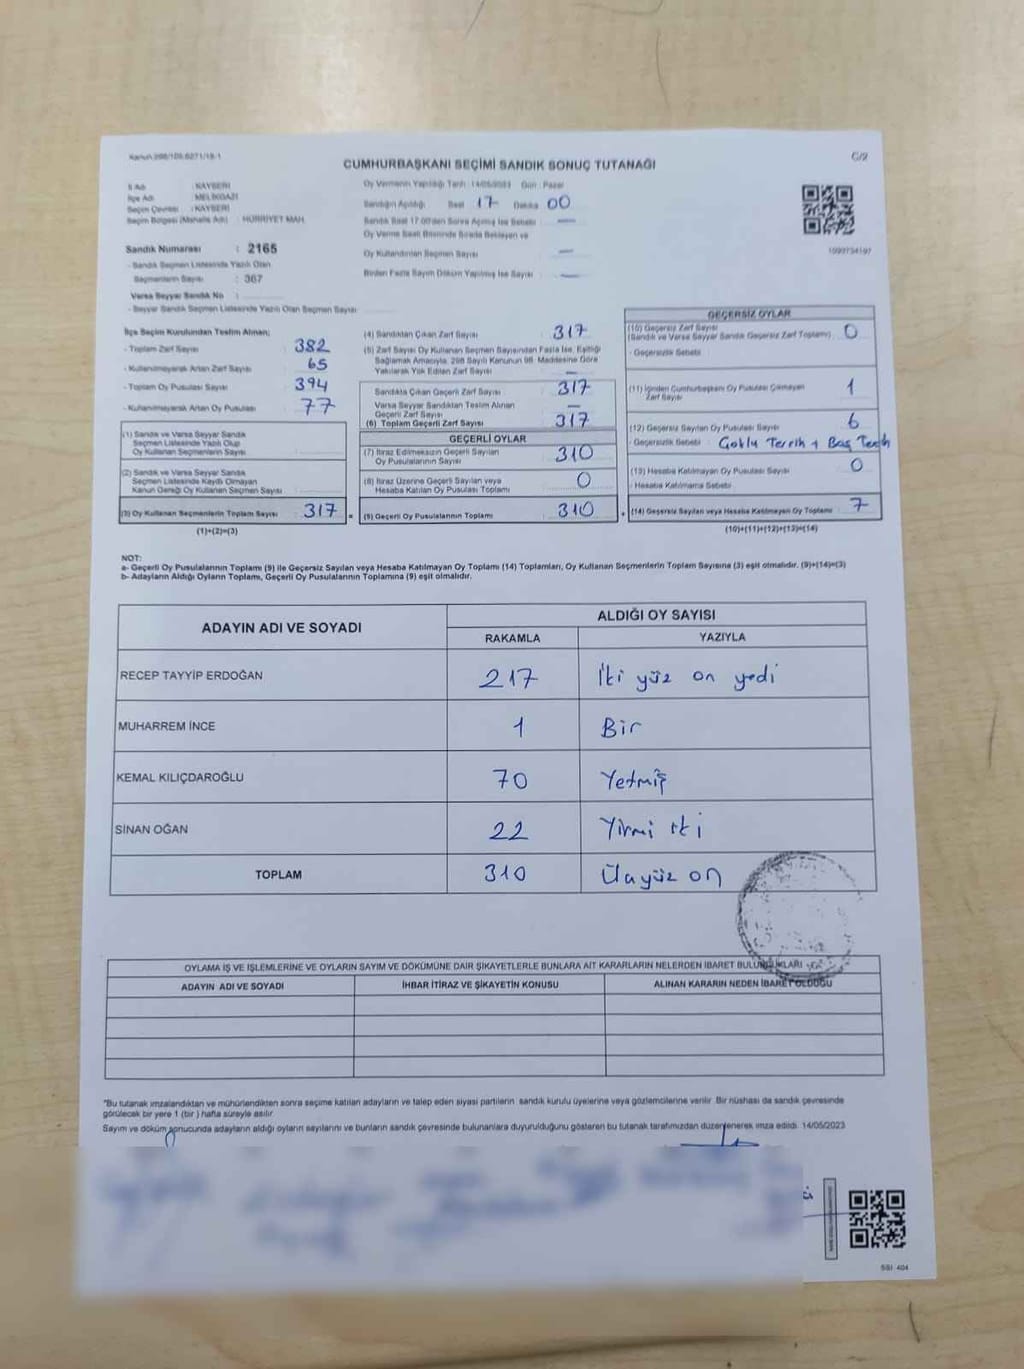 Kanun:298/105.6271/18-1
G/2
CUMHURBAŞKANI SEÇİMİ SANDIK SONUÇ TUTANAĞI
İl Adı : KAYSERİ
İlçe Adı : MELİKGAZİ
Seçim Çevresi : KAYSERİ
Seçim Bölgesi (Mahalle Adı) : HÜRRİYET MAH.
Sandık Numarası : 2165
- Sandık Seçmen Listesinde Yazılı Olan
Seçmenlerin Sayısı : 367
Varsa Seyyar Sandık No :
- Seyyar Sandık Seçmen Listesinde Yazılı Olan Seçmen Sayısı
Oy Vermenin Yapıldığı Tarih : 14/05/2023 Gün : Pazar
Sandığın Açıldığı Saat 17 Dakika 00
Sandık Saat 17.00'den Sonra Açılmış İse Sebebi : —
Oy Verme Saati Bitiminde Sırada Bekleyen ve
Oy Kullandırılan Seçmen Sayısı : —
Birden Fazla Sayım Döküm Yapılmış İse Sayısı : —
İlçe Seçim Kurulundan Teslim Alınan;
- Toplam Zarf Sayısı : 382
- Kullanılmayarak Artan Zarf Sayısı : 65
- Toplam Oy Pusulası Sayısı : 394
- Kullanılmayarak Artan Oy Pusulası : 77
(1) Sandık ve Varsa Seyyar Sandık
Seçmen Listesinde Yazılı Olup
Oy Kullanan Seçmenlerin Sayısı
(2) Sandık ve Varsa Seyyar Sandık
Seçmen Listesinde Kayıtlı Olmayan
Kanun Gereği Oy Kullanan Seçmen Sayısı
(3) Oy Kullanan Seçmenlerin Toplam Sayısı : 317
(1)+(2)=(3)
(4) Sandıktan Çıkan Zarf Sayısı : 317
(5) Zarf Sayısı Oy Kullanan Seçmen Sayısından Fazla İse, Eşitliği
Sağlamak Amacıyla, 298 Sayılı Kanunun 98. Maddesine Göre
Yakılarak Yok Edilen Zarf Sayısı : —
Sandıkta Çıkan Geçerli Zarf Sayısı : 317
Varsa Seyyar Sandıktan Teslim Alınan
Geçerli Zarf Sayısı : —
(6) Toplam Geçerli Zarf Sayısı : 317
GEÇERLİ OYLAR
(7) İtiraz Edilmeksizin Geçerli Sayılan
Oy Pusulalarının Sayısı : 310
(8) İtiraz Üzerine Geçerli Sayılan veya
Hesaba Katılan Oy Pusulası Toplamı : 0
(9) Geçerli Oy Pusulalarının Toplamı : 310
GEÇERSİZ OYLAR
(10) Geçersiz Zarf Sayısı
(Sandık ve Varsa Seyyar Sandık Geçersiz Zarf Toplamı) : 0
- Geçersizlik Sebebi :
(11) İçinden Cumhurbaşkanı Oy Pusulası Çıkmayan
Zarf Sayısı : 1
(12) Geçersiz Sayılan Oy Pusulası Sayısı : 6
- Geçersizlik Sebebi :
(13) Hesaba Katılmayan Oy Pusulası Sayısı : 0
- Hesaba Katılmama Sebebi :
(14) Geçersiz Sayılan veya Hesaba Katılmayan Oy Toplamı : 7
(10)+(11)+(12)+(13)=(14)
NOT:
a- Geçerli Oy Pusulalarının Toplamı (9) ile Geçersiz Sayılan veya Hesaba Katılmayan Oy Toplamı (14) Toplamları, Oy Kullanan Seçmenlerin Toplam Sayısına (3) eşit olmalıdır. (9)+(14)=(3)
b- Adayların Aldığı Oyların Toplamı, Geçerli Oy Pusulalarının Toplamına (9) eşit olmalıdır.
ADAYIN ADI VE SOYADI
ALDIĞI OY SAYISI
RAKAMLA YAZIYLA
RECEP TAYYİP ERDOĞAN 217 İki yüz on yedi
MUHARREM İNCE 1 Bir
KEMAL KILIÇDAROĞLU 70 Yetmiş
SİNAN OĞAN 22 Yirmi iki
TOPLAM 310 Üçyüz on
OYLAMA İŞ VE İŞLEMLERİNE VE OYLARIN SAYIM VE DÖKÜMÜNE DAİR ŞİKAYETLERLE BUNLARA AİT KARARLARIN NELERDEN İBARET BULUNDUKLARI
ADAYIN ADI VE SOYADI İHBAR İTİRAZ VE ŞİKAYETİN KONUSU ALINAN KARARIN NEDEN İBARET OLDUĞU
*Bu tutanak imzalandıktan ve mühürlendikten sonra seçime katılan adayların ve talep eden siyasi partilerin sandık kurulu üyelerine veya gözlemcilerine verilir. Bir nüshası da sandık çevresinde
görülecek bir yere 1 (bir) hafta süreyle asılır.
Sayım ve döküm sonucunda adayların aldığı oyların sayılarını ve bunların sandık çevresinde bulunanlara duyurulduğunu gösteren bu tutanak tarafımızdan düzenlenerek imza edildi. 14/05/2023